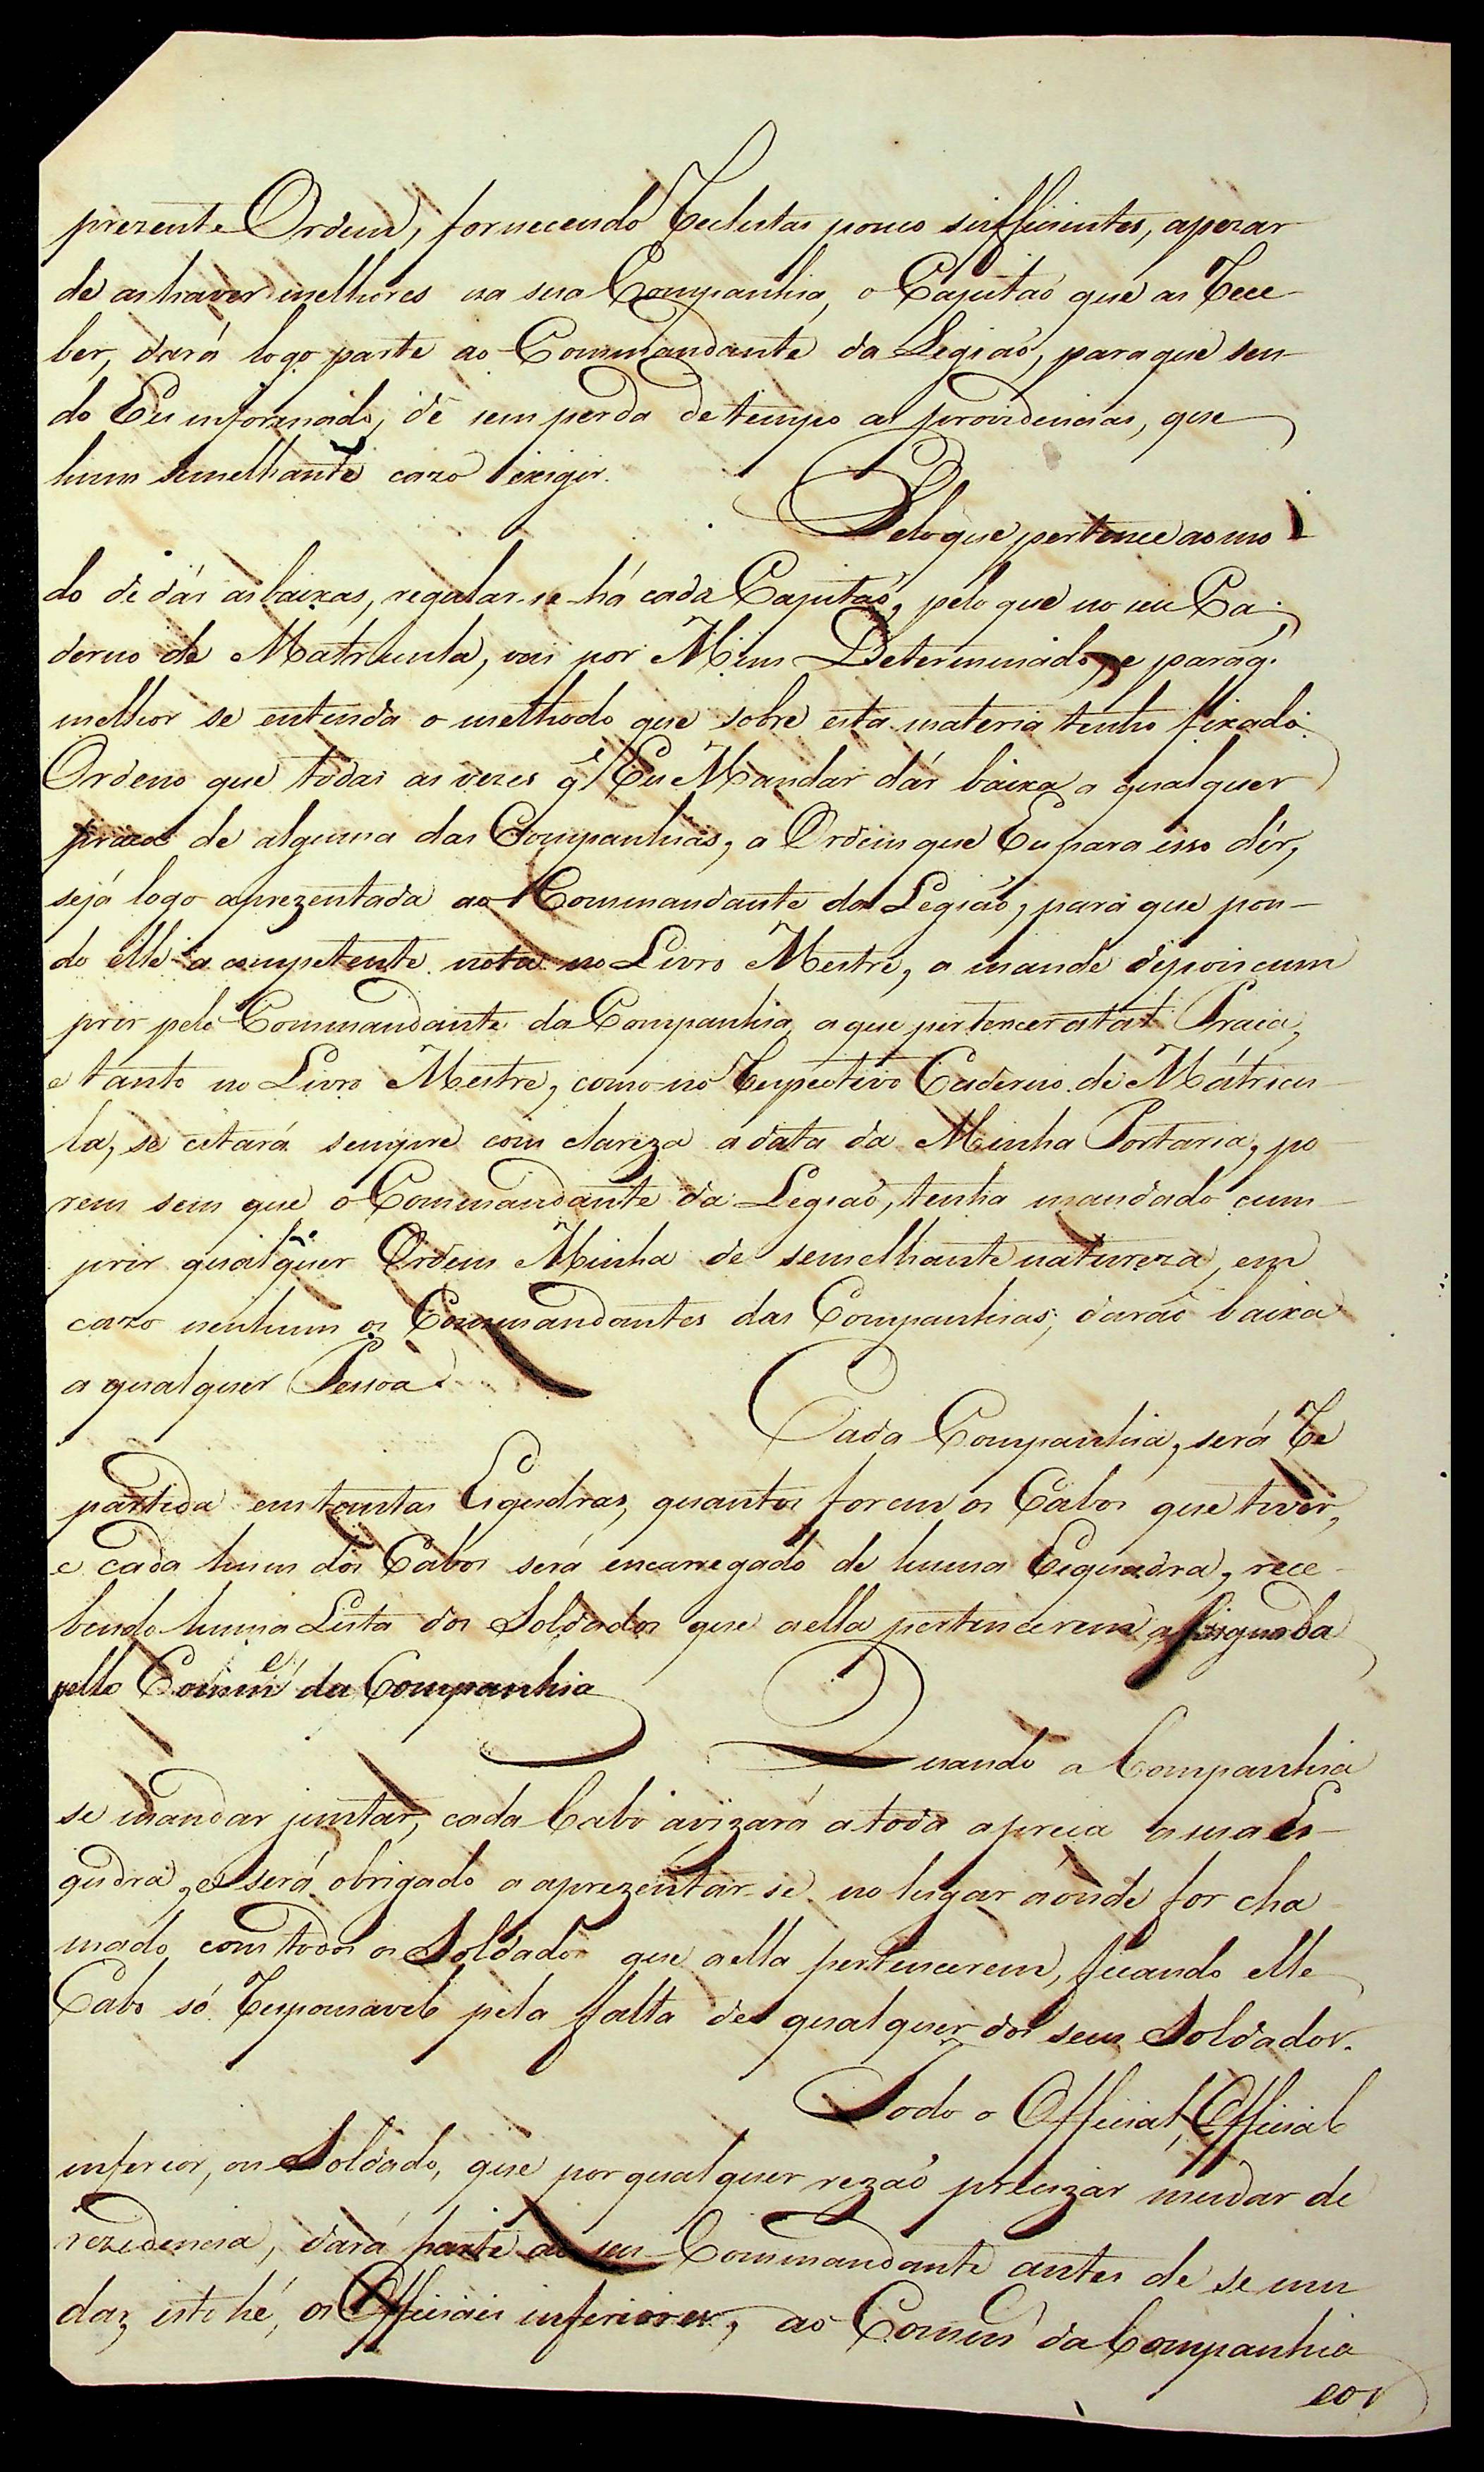 prezente Ordem, fornecendo Reclutas pouco sufficientes, apezar
de as haver melhores na sua Companhia, o Capitaõ que as Rece-
ber, dará logo parte ao Commandante da Legiaõ, para que sen-
do Eu informado, dê sem perda de tempo as providencias, que
hum semelhante cazo exigir.
Pelo que pertence ao mo-
do de dár as baixas, regular-se-há cada Capitaõ, pelo que no seu Ca-
derno de Matricula, vai por Mim Determinado, e para q.
melhor se entenda o methodo que sobre esta materia tenho fixado
Ordeno que todas as vezes q̃ Eu Mandar dár baixa a qualquer
praça de alguma das Companhias, a Ordem que Eu para isso dér,
sejá logo aprezentada ao Commandante da Legiaõ, para que pon-
do elle a competente nota no Livro Mestre, a mande depois cum
prir pelo Commandante da Companhia, a que pertencer a tal Praça,
e tanto no Livro Mestre, como no Respectivo Caderno de Matricu-
la, se citará sempre com clareza a data da Minha Portaria, po
rem sem que o Commandante da Legiaõ, tenha mandado cum-
prir qualquer Ordem Minha de semelhante natureza, em
cazo nenhum os Commandantes das Companhias, daraõ baixa
a qualquer Pessoa.
Cada Companhia, será Re
partida em tantas Esqudras, quantos forem os Cabos que tiver,
e cada hum dos Cabos será encarregado de huma Esquadra, rece-
bendo huma Lista dos Soldados que a ella pertencerem assignada
pello Comm.e da Companhia
Quando a Companhia
se mandar juntar, cada Cabo avizará a toda a preça a sua Es-
qudra, e será obrigado a aprezentar-se no lugar aonde for cha
mado, com todos os Soldados que a ella pertencerem, ficando elle
Cabo só Responsavel pela falta de qualquer dos seus Soldados.
Todo o Official, Official
inferior, ou Soldado, que por qualquer rezaõ precizar mudar de
rezidencia, dará parte ao seu Commandante antes de se mu
dar, isto hé, os Officiaes inferiores, ao Comm.e da Companhia
eos